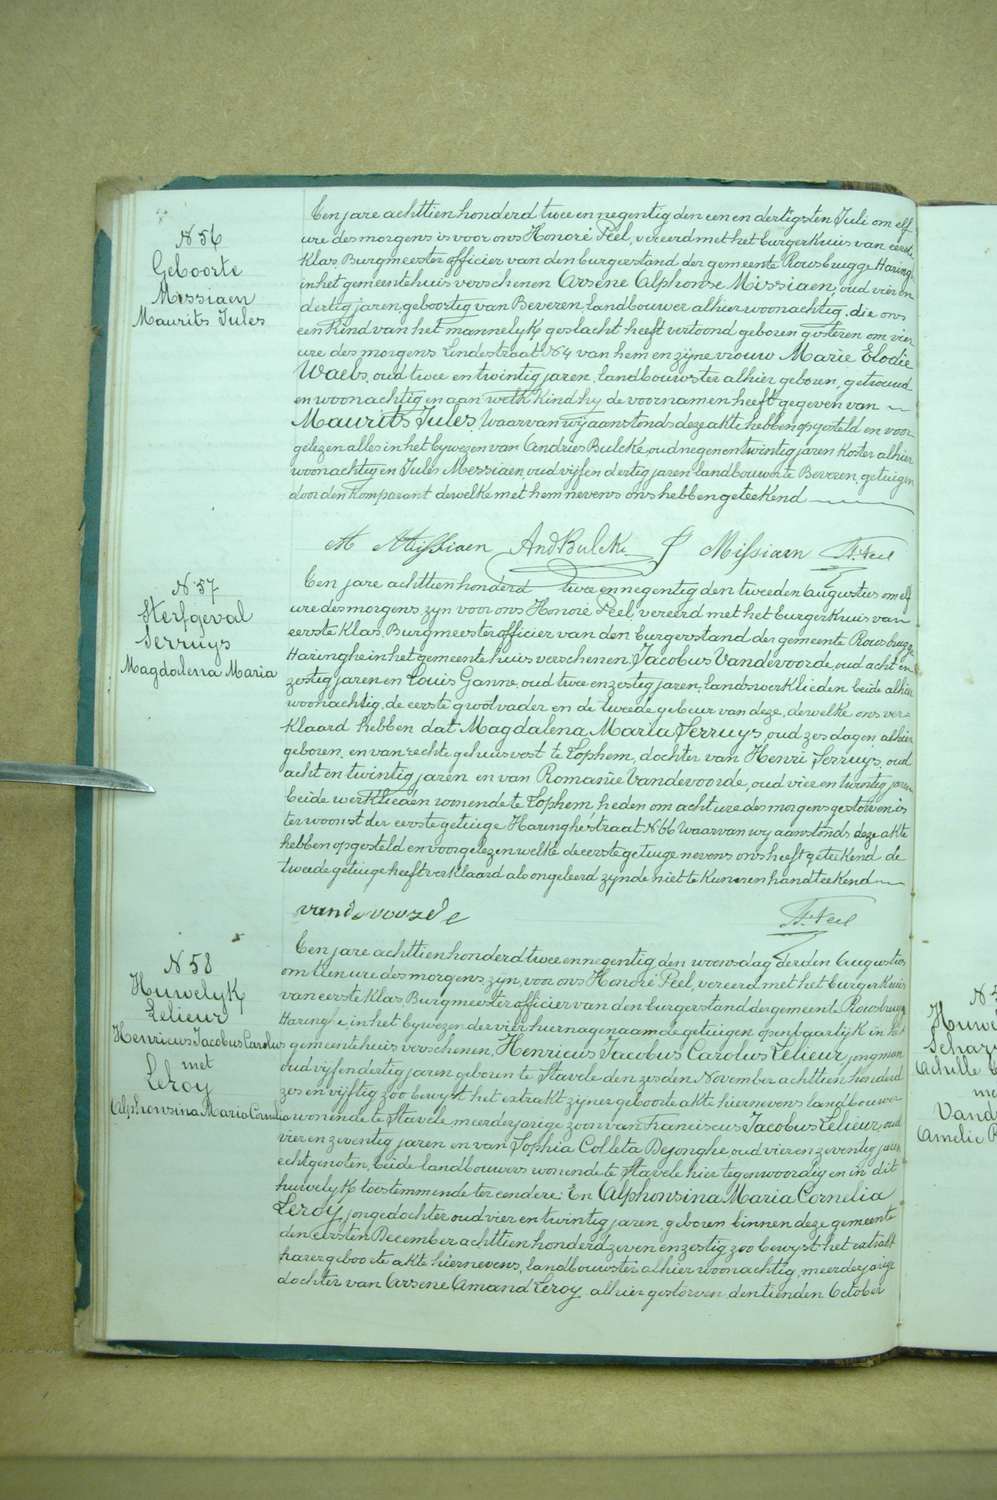 N 56
Geboorte
Missiaen
Maurits Jules
Een jare achttien honderd twee en negentig den een en dertigsten Juli om elf
ure des morgens is voor ons Honoré Peel, vereerd met het burgerkuis van eerste
klas Burgmeester officier van den burgerstand der gemeente Rousbrugge Haringe
in het gemeentehuis verschenen Arsène Alphonse Missiaen, oud vier en
dertig jaren, geboortig van Beveren, landbouwer alhier woonachtig, die ons
een kind van het mannelyk geslacht heeft vertoond geboren gisteren om vier
ure des morgens Lindestraat N 4 van hem en zyne vrouw Marie Elodie
Waels, oud twee en twintig jaren, landbouwster alhier geboren, getrouwd
en woonachtig en aan welk kind hy de voornamen heeft gegeven van
Maurits Jules, Waarvan wy aanstonds deze akte hebben opgesteld en voor-
gelezen alles in het bywezen van Andries Bulcke, oud negen en twintig jaren koster alhier
woonachtig en Jules Messiaen, oud vyf en dertig jaren landbouwer te Beveren, getuigen
door den komparant dewelke met hem nevens ons hebben geteekend
A Missiaen And Bulcke J Missiaen H. Peel
N 57
Sterfgeval
Serruys
Magdalena Maria
Een jare achttien honderd twee en negentig den tweeden Augustus om elf
ure des morgens zyn voor ons Honoré Peel, vereerd met het burgerkuis van
eerste klas, Burgmeester officier van den burgerstand der gemeente Rousbrugge
Haringhe in het gemeentehuis verschenen, Jacobus Vandevoorde, oud acht en
zestig jaren en Louis Ganne, oud twee en zestig jaren, landswerklieden beide alhier
woonachtig, de eerste grootvader en de tweede gebuur van deze, dewelke ons ver-
klaard hebben dat Magdalena Maria Serruys, oud zes dagen, alhier
geboren, en van rechte gehuisvest te Lophem, dochter van Henri Serruys, oud
acht en twintig jaren en van Romanie Vandevoorde, oud vier en twintig jaren
beide werklieden wonende te Lophem, heden om acht ure des morgens gestorven is
ter woonst der eerste getuige Haringhestraat N 66 Waarvan wy aanstonds deze akte
hebben opgesteld en voorgelezen welke de eerste getuige nevens ons heeft geteekend, de
tweede getuige heeft verklaard als ongeleerd zynde niet te kunnen handteekend
vandevoorde H. Peel
N 58
Huwelyk
Lelieur
Henricus Jacobus Carolus
met
Leroy
Alphonsina Maria Cornelia
Een jare achttien honderd twee en negentig, den woensdag derden Augustus
om tien ure des morgens, zyn voor ons Honoré Peel, vereerd met het burgerkuis
van eerste klas Burgmeester officier van den burgerstand der gemeente Rousbrugge
Haringhe, in het bywezen der vier hiernagenaamde getuigen openbaarlyk in het
gemeentehuis verschenen, Henricus Jacobus Carolus Lelieur, jongman
oud vyf en dertig jaren geboren te Stavele den zesden November achttien honderd
zes en vyftig zoo bewyst het extrakt zyner geboorte akte hiernevens, landbouwer
wonende te Stavele meerderjarige zoon van Franciscus Jacobus Lelieur, oud
vier en zeventig jaren en van Sophia Colleta Dejonghe, oud vier en zeventig jaren
echtgenoten, beide landbouwers wonende te Stavele hier tegenwoordig en in dit
huwelyk toestemmende ter eendere En Alphonsina Maria Cornelia
Leroy, jongedochter oud vier en twintig jaren, geboren binnen deze gemeente
den eersten December achttien honderd zeven en zestig zoo bewyst het extrakt
harer geboorte akte hiernevens, landbouwster alhier woonachtig, meerderjarige
dochter van Arsene Amand Leroy alhier gestorven den tienden October